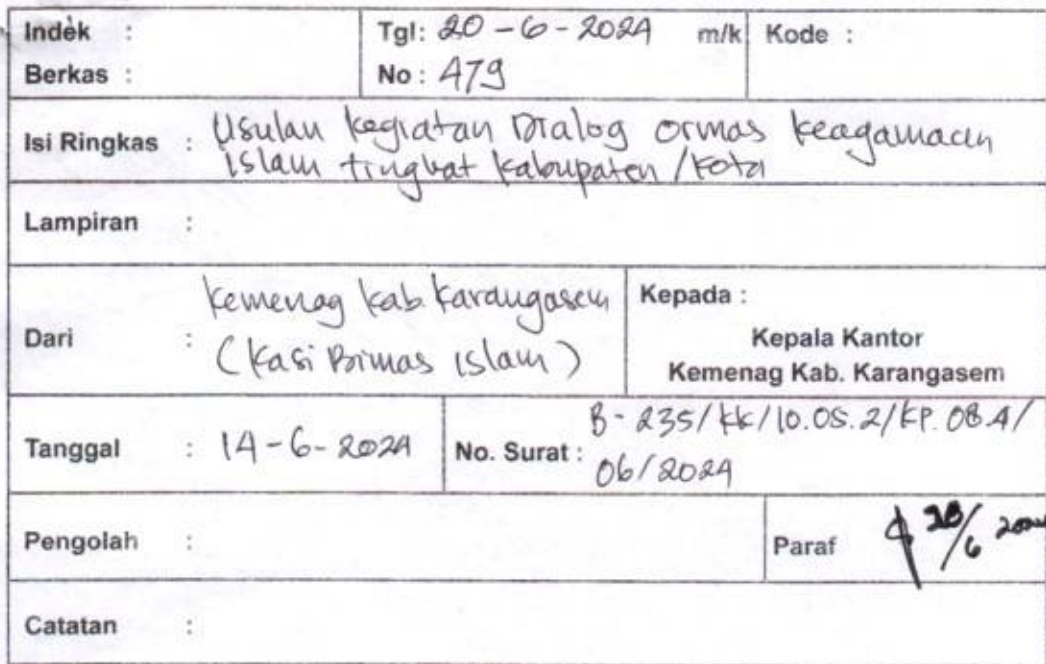 Indek : Tgl: 20-6-2024 m/k Kode :
Berkas : No : 479
Isi Ringkas : Usulan kegiatan Dialog ormas keagamaan
Islam tingkat kabupaten/kota
Lampiran :
Dari : Kemenag kab. Karangasem
(Kasi Bimas Islam)
Kepada :
Kepala Kantor
Kemenag Kab. Karangasem
Tanggal : 14-6-2024 No. Surat : B-235/kk/10.05.2/KP.08.4/
06/2024
Pengolah : Paraf 20/6 2024
Catatan :